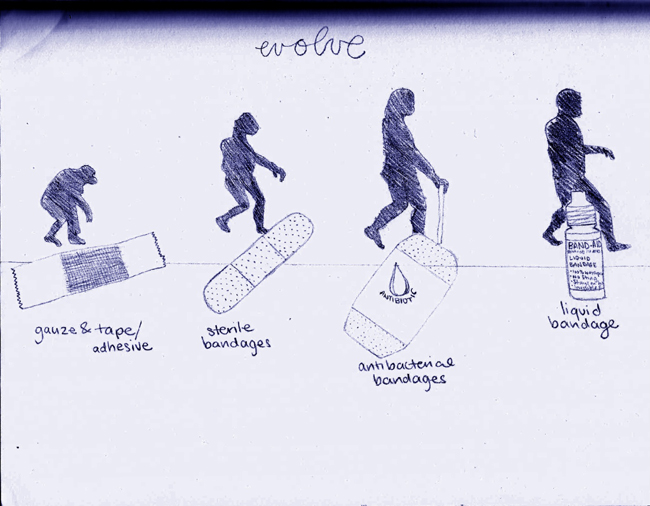 evolve
gauze & tape/
adhesive
sterile
bandages
ANTIBIOTIC
antibacterial
bandages
BAND-AID
LIQUID
BANDAGE
liquid
bandage